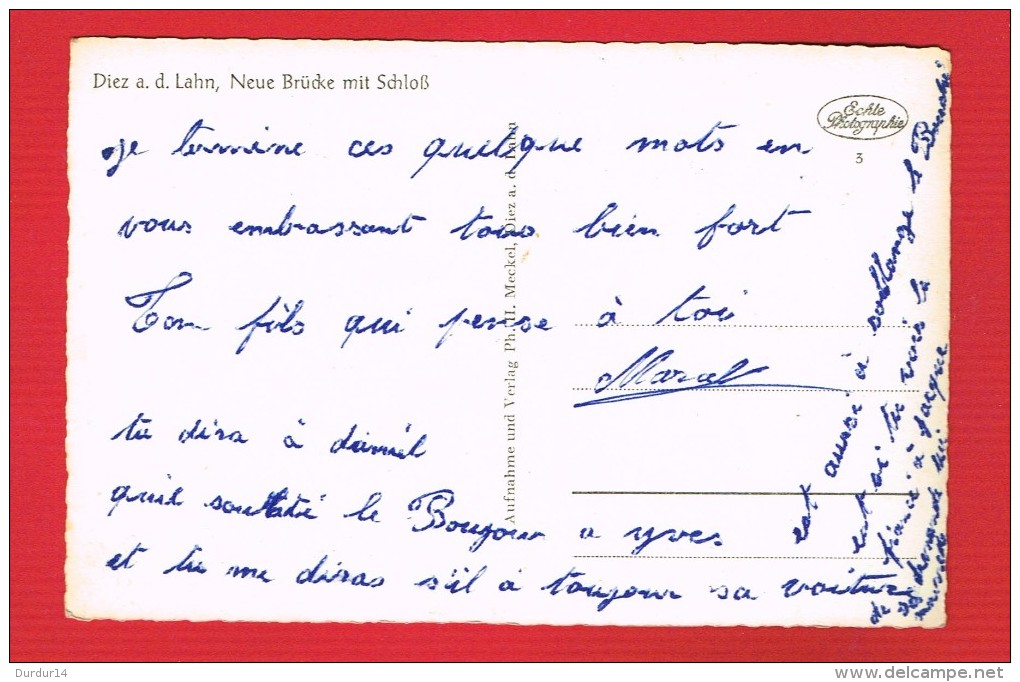 Diez a. d. Lahn, Neue Brücke mit Schloß
Echte
Photographie
3
je termine ces quelque mots en
vous embrassant tous bien fort
Ton fils qui pense à toi
Marcel
tu dira à daniel
quil souhaité le Bonjour a yves
et tu me diras s'il a toujour sa voiture
aussi à
et si tu vois la
fiancé à jacque
Aufnahme und Verlag Ph. H. Meckel, Diez a. d. Lahn
Durdur14
www.delcampe.net